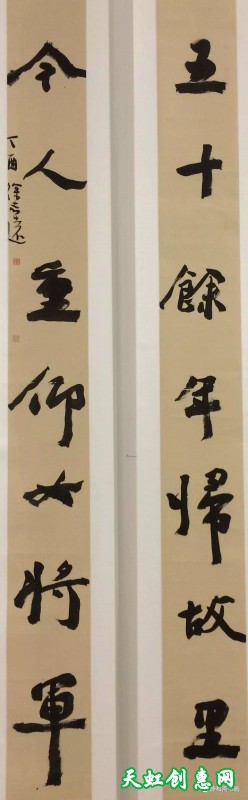 五十餘年歸故里
令人重仰女將軍
丁酉徐
天虹创意网